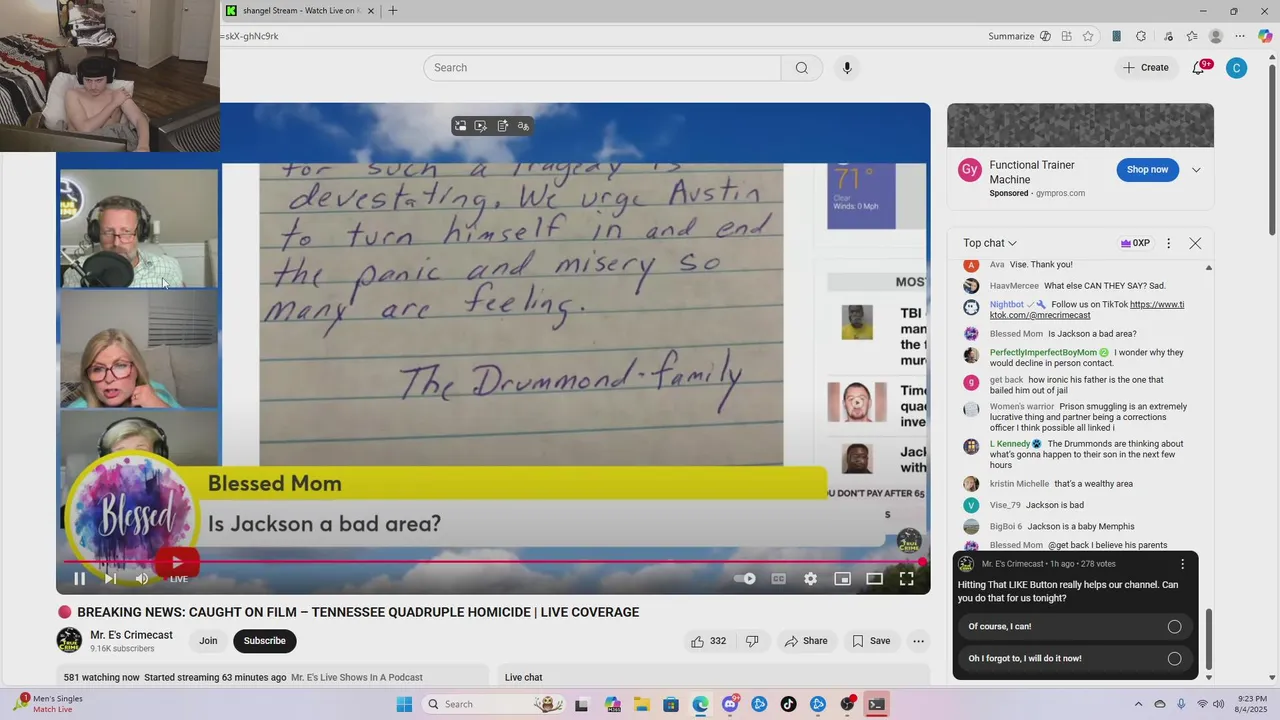 shangel Stream - Watch Live on K
=skX-ghNc9rk
Summarize
Search
Create
9+
C
to such a tragedy is
devastating. We urge Austin
to turn himself in and end
the panic and misery so
many are feeling.
The Drummond-family
71°
Clear
Winds: 0 Mph
MOS
TBI
man
the f
mur
Time
quad
inve
Jack
with
OU DON'T PAY AFTER 65
S
TRUE
CRIME
Blessed
Blessed Mom
Is Jackson a bad area?
LIVE
BREAKING NEWS: CAUGHT ON FILM – TENNESSEE QUADRUPLE HOMICIDE | LIVE COVERAGE
Mr. E's Crimecast
9.16K subscribers
Join
Subscribe
332
Share
Save
581 watching now Started streaming 63 minutes ago Mr. E's Live Shows In A Podcast
Live chat
Gy
Functional Trainer
Machine
Sponsored · gympros.com
Shop now
Top chat
0XP
Ava Vise. Thank you!
HaavMercee What else CAN THEY SAY? Sad.
Nightbot Follow us on TikTok https://www.ti
ktok.com/@mrecrimecast
Blessed Mom Is Jackson a bad area?
PerfectlyImperfectBoyMom I wonder why they
would decline in person contact.
get back how ironic his father is the one that
bailed him out of jail
Women's warrior Prison smuggling is an extremely
lucrative thing and partner being a corrections
officer I think possible all linked i
L Kennedy The Drummonds are thinking about
what's gonna happen to their son in the next few
hours
kristin Michelle that's a wealthy area
Vise_79 Jackson is bad
BigBoi 6 Jackson is a baby Memphis
Blessed Mom @get back I believe his parents
Mr. E's Crimecast • 1h ago • 278 votes
Hitting That LIKE Button really helps our channel. Can
you do that for us tonight?
Of course, I can!
Oh I forgot to, I will do it now!
Men's Singles
Match Live
Search
9:23 PM
8/4/2025